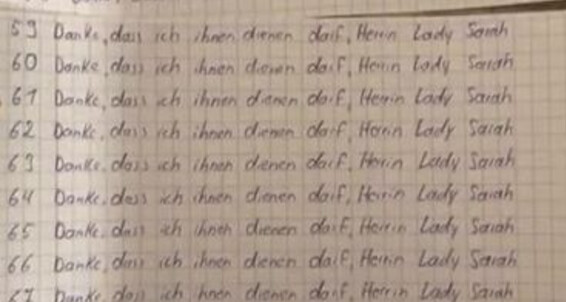 59 Danke, dass ich ihnen dienen darf, Herrin Lady Sarah
60 Danke, dass ich ihnen dienen darf, Herrin Lady Sarah
61 Danke, dass ich ihnen dienen darf, Herrin Lady Sarah
62 Danke, dass ich ihnen dienen darf, Herrin Lady Sarah
63 Danke, dass ich ihnen dienen darf, Herrin Lady Sarah
64 Danke, dass ich ihnen dienen darf, Herrin Lady Sarah
65 Danke, dass ich ihnen dienen darf, Herrin Lady Sarah
66 Danke, dass ich ihnen dienen darf, Herrin Lady Sarah
67 Danke, dass ich ihnen dienen darf, Herrin Lady Sarah